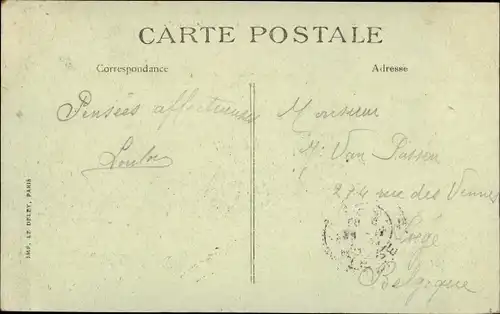 CARTE POSTALE
Correspondance
Adresse
Pensées affectueuses
Monsieur
M. Van Passen
274 rue des Vennes
Liège
Belgique
IMP. LE DELEY, PARIS